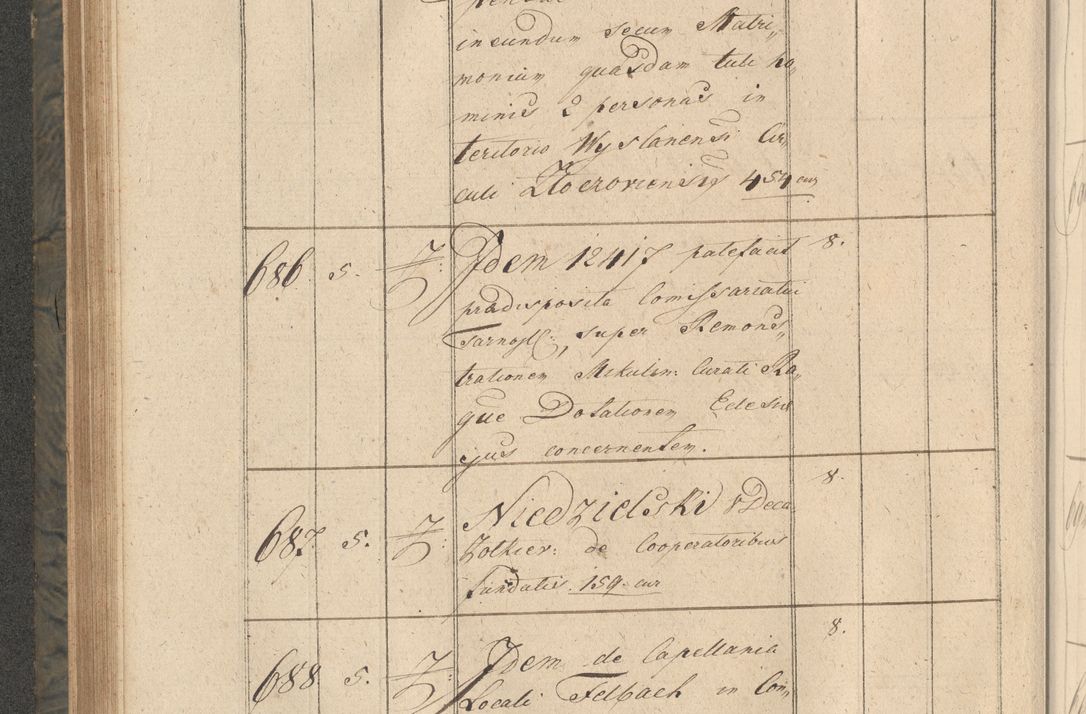 ineundum secum Matri„
monium quasdam tuli ho„
minis 2 personas in
teritorio Wyslanensi Cir„
culi Zloczoviensis 454 cur
686. 5. 7 Idem 12417 patefacit 8.
prædisposita Comissariatui
Tarnopl:, super Remons„
trationem Mikulin: Curati Ra„
que Dotationem Eclesiæ
ejus concernentem.
687. 5. 7 Niedzielski VDeca 8.
Zolkiev: de Cooperatoribus
fundatis. 159. cur
688 5. 7 Idem de Capellania 8.
Locali Felbach in Con„